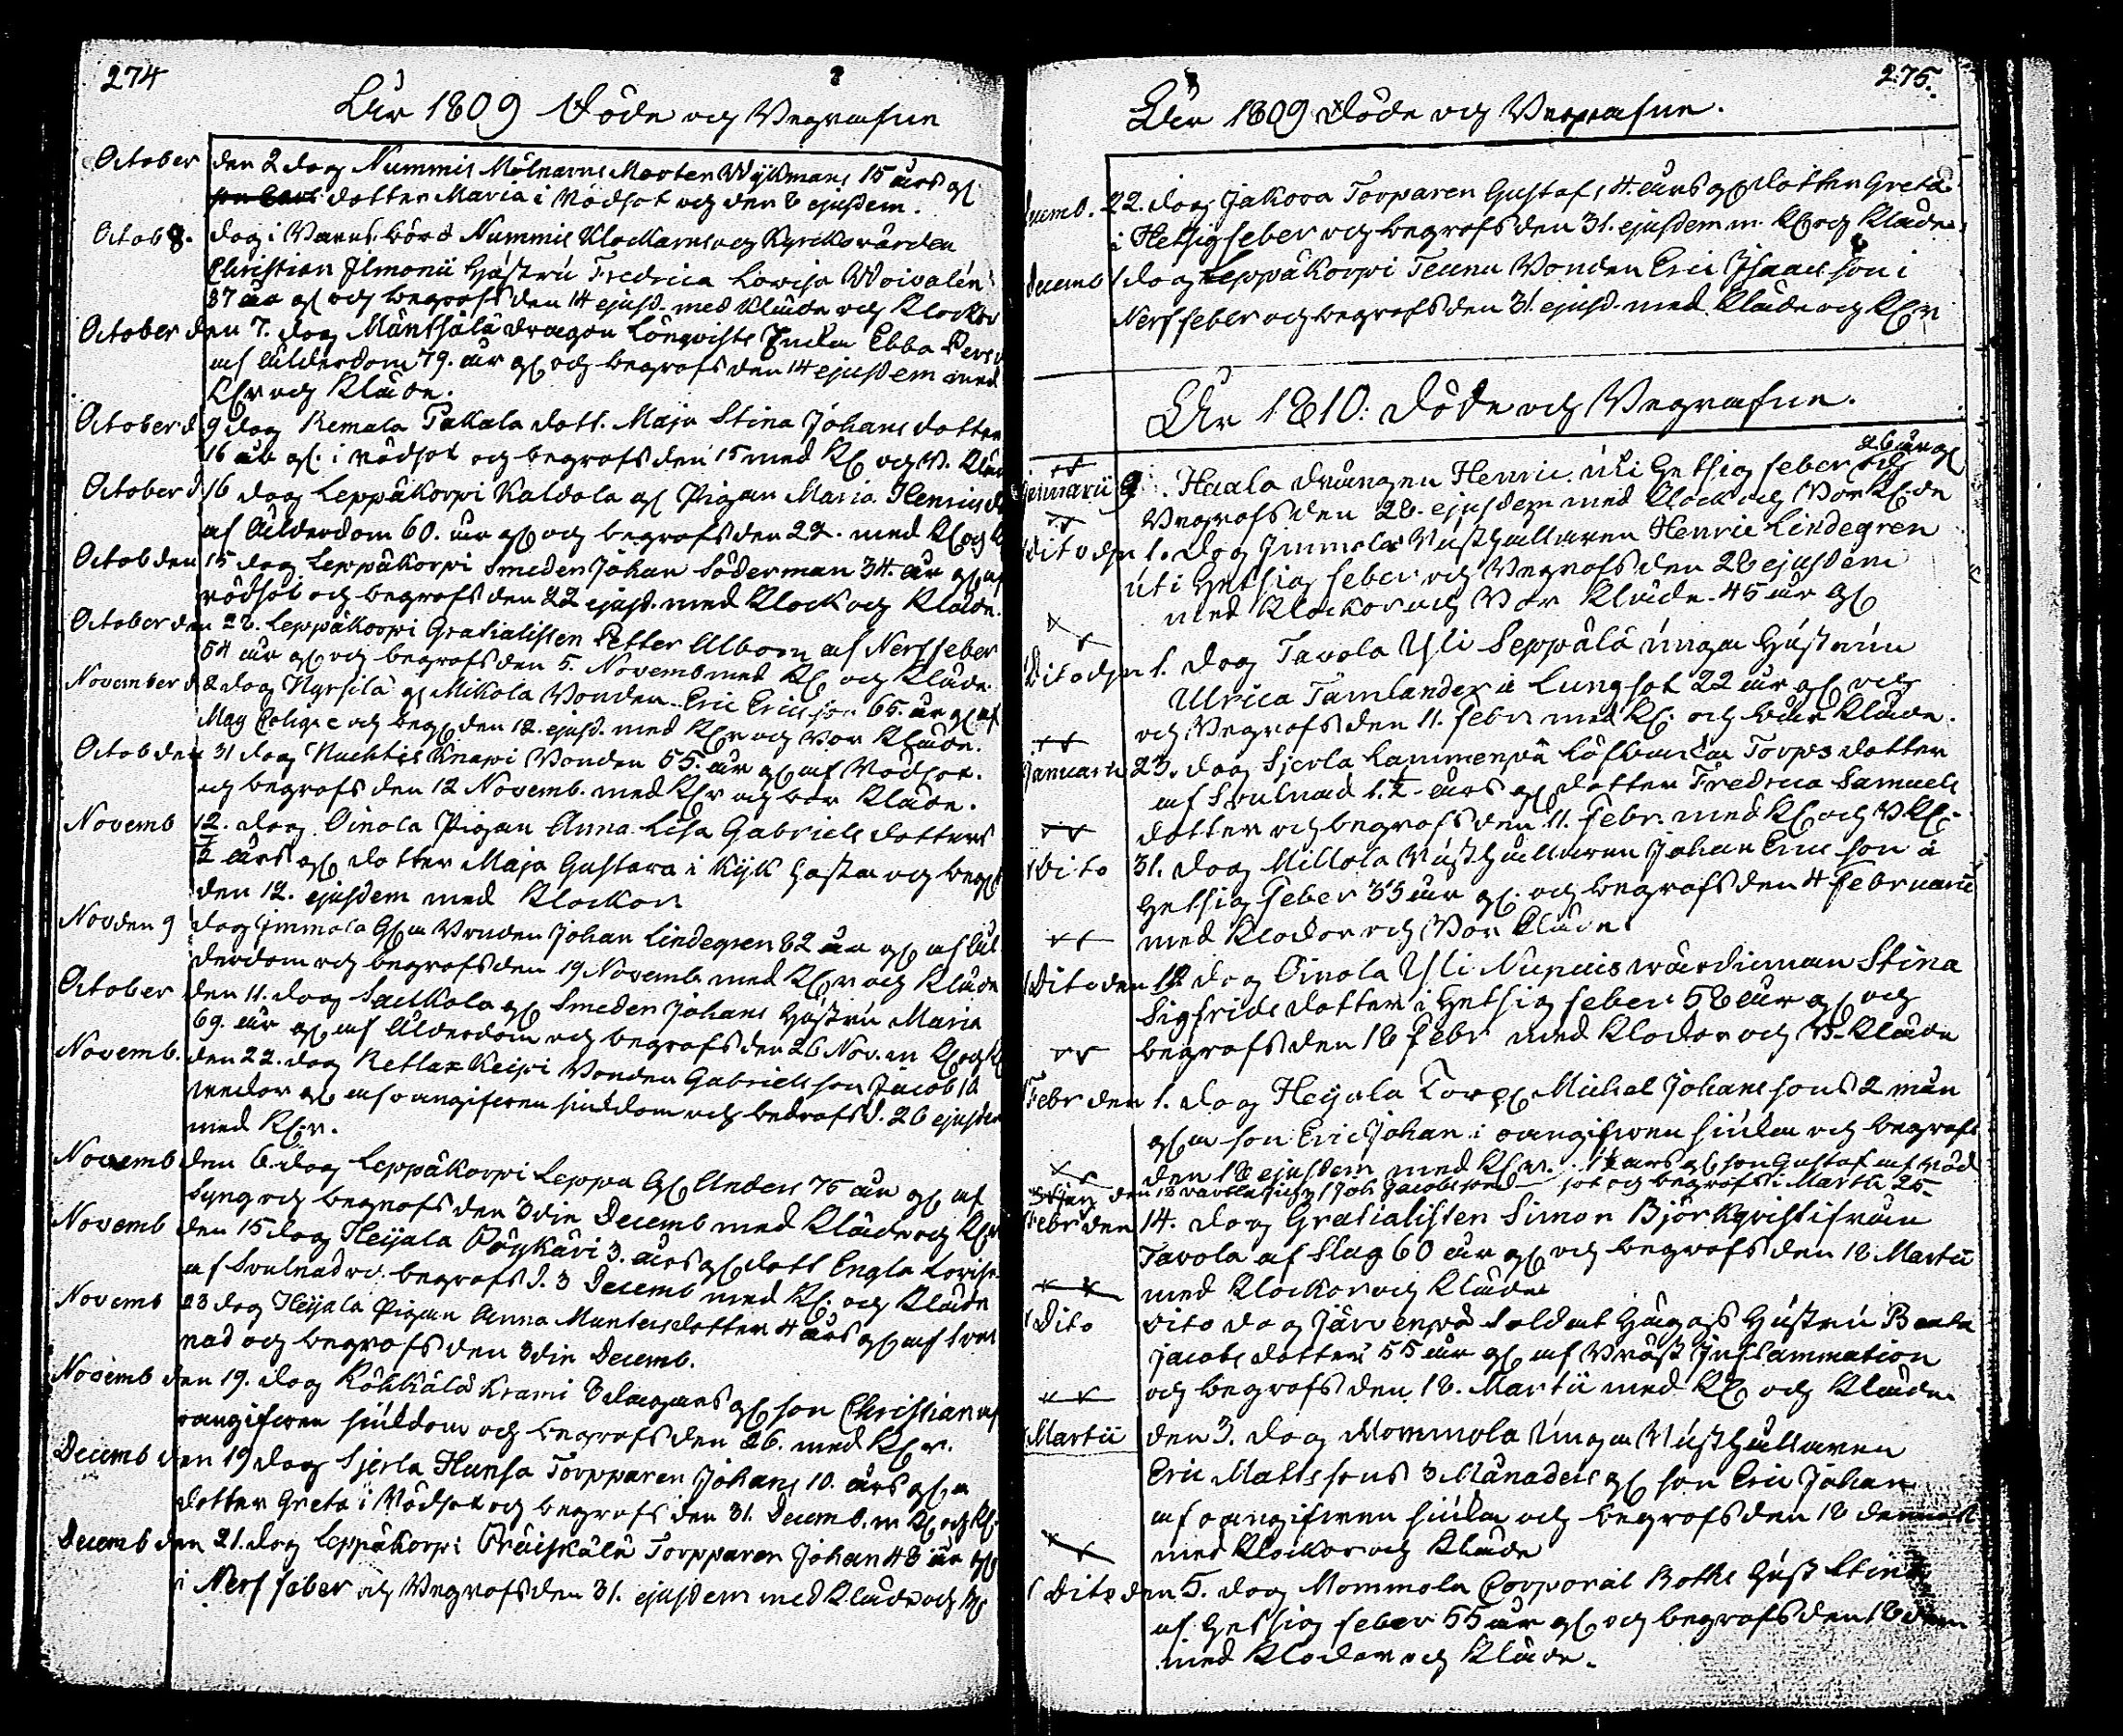 274
År 1809 Döde och Begrafne
October den 2 dag Nummis Mölnarns Morten Wykmans 15 års gl
dotter Maria i Rödsot och den 8 ejusdem.
Octob 8. dag i Barns börd Nummis Klockarns och Kyrckovärden
Christian Ilmonii Hústrú Fredrica Lovisa Woivalén
37 år gl och begrofs den 14 ejusd. med Kläde och Klockor
October den 7. dag Mäntsälä dragon Lönqvists Enka Ebba Pers
af Ålderdom 79. år gl och begrofs den 14 ejusdem med
Klr och Kläde.
October d 9 dag Remala Pakala dott. Maja Stina Johans dotter
16 år gl. i rödsot och begrofs den 15 med Kl och B. Kläd
October d 16 dag Leppäkorpi Kaldola gl Pigan Maria Henrics d
af Ålderdom 60. år gl och begrofs den 22. med Kl och K
Octob den 15 dag Leppäkorpi Smeden Johan Söderman 34. år gl af
rödsot och begrofs den 22 ejusd. med Klock och Kläde.
October den 28. Leppäkorpi Gratialisten Petter Albom af Nerffeber
54 år gl och begrofs den 5. Novemb med Kl och Kläde.
November d 2 dag Hyrsilä gl Mikola Bonden Eric Ericsson 65. år gl af
Mag Colique och begl den 12. ejusd. med Klr och Bor Kläde.
Octob den 31 dag Nuchtis Knapi Bonden 55. år gl af Rödsot.
och begrofs den 12 Novemb. med Klr och bor Kläde.
Novemb 12. dag Oinola Pigan Anna Lisa Gabriels dotters
1/2 års gl dotter Maja Gustava i Kyk hosta och begl
den 12. ejusdem med Klockor
Nov den 9 dag Immola Gla Bonden Johan Lindegren 82 år gl af Ål
derdom och begrofs den 19 Novemb. med Klr och Kläde
October den 11. dag Sadkola gl Smeden Johans Hústrú Maria
69. år gl af Ålderdom och begrofs den 26 Nov. m Kl och K
Novemb. den 22. dag Ketlax Keipi Bonden Gabriels son Jacob 16
weckor gl af oangifven siukdom och bedrofs d. 26 ejusdem
med Klr.
Novemb den 6. dag Leppäkorpi Leppa Gl Anders 75 år gl af
Syng och begrofs den 3 die Decemb med Kläde och Klr
Novemb den 15 dag Heijala Pöykäri 3. års gl dott Engla Lovisa
af Svulnad och begrofs d. 3 Decemb med Kl. och Kläde
Novemb 23 dag Heijala Pigan Anna Muntersdotter 4 års gl af Svul
nad och begrofs den 3 die Decemb.
Novemb den 19. dag Kökkälä Krami 8 dagars gl son Christian af
oangifven siukdom och begrofs den 26. med Klr.
Decemb den 19 dag Sjerla Hunsa Torpparen Johans 10. års gla
dotter Greta i Rödsot och begrofs den 31. Decemb. m Kl och Kl.
Decemb den 21. dag Leppäkorpi Präiskälä Torpparen Johan 48 år gl
i Nerffeber och Begrofs den 31. ejusdem med Kläde och Kl
275.
År 1809 Döde och Begrafne.
Decemb. 22. dag Jakova Torparen Gustafs 4. års gl dotter Greta
i Hetsigfeber och begrofs den 31. ejusdem m. Kl och Kläde.
Decemb 1 dag Leppäkorpi Teunu Bonden Eric Isaacsson i
Nerffeber och begrofs den 31. ejusd. med Kläde och Klr
År 1810. Döde och Begrafne.
26 år gl
Januarii 9. Haala Drängen Henric úti Hetsig feber och
Begrofs den 28. ejusdem med Klock och Bor Kläde
Dito den 1. dag Immola Búshållaren Henric Lindegren
úti Hetsig feber och Begrofs den 28 ejusdem
med Klockor och Bor Kläde. 45 år gl
Dito den 1. dag Tavola Yli Seppälä únga Hústrún
Ulrica Tamlander i Lungsot 22 år gl och
och Begrofs den 11. Febr med Kl. och bår Kläde.
Januarii 23. dag Sjerla Lammenpä Löfbacka Torps dotter
af Svulnad 1.1/2 års gl dotter Fredrica Samuels
dotter och begrofs den 11. Febr. med Kl och B Kl.
Dito 31. dag Millola Búshållaren Johan Ericsson i
Hetsig feber 33 år gl. och begrofs den 4 Februarii
med Klockor och Bor Kläde
Dito den 12 dag Oinola Yli Nupais wärdinnan Stina
Sigfrids dotter i Hetsig feber 58 år gl och
begrofs den 18 Febr med Klockor och B. Kläde
Febr den 1. dag Heijala Torp. Michel Johanssons 2 mån
gla son Eric Johan i oangifven siúka och begrofs
den 18 ejusdem med Klr. 1 1/2 års gl son Gustaf af Röd
den 18 Joh Jacobsson sot och begrofs i Martii 25.
Febr den 14. dag Gratialisten Simon Björkqvist ifrån
Tavola af Slag 60 år gl och begrofs den 18. Martii
med Klockor och Kläde
Dito dito dag Järvenpä Soldat Hägers Hústrú Beata
Jacobs dotter 55 år gl af Bröst Inflammation
och begrofs den 18. Martii med Kl och Kläde
Martii den 3. dag Mommola Únga Búshållaren
Eric Matssons 3 Månaders gl son Eric Johan
af oangifven siúka och begrofs den 18 dennes
med Klockor och Kläde
Dito den 5. dag Mommola Corporal Boths Húst Stina
af Hetsig feber 55 år gl och begrofs den 18 dem
med Klockor och Kläde.